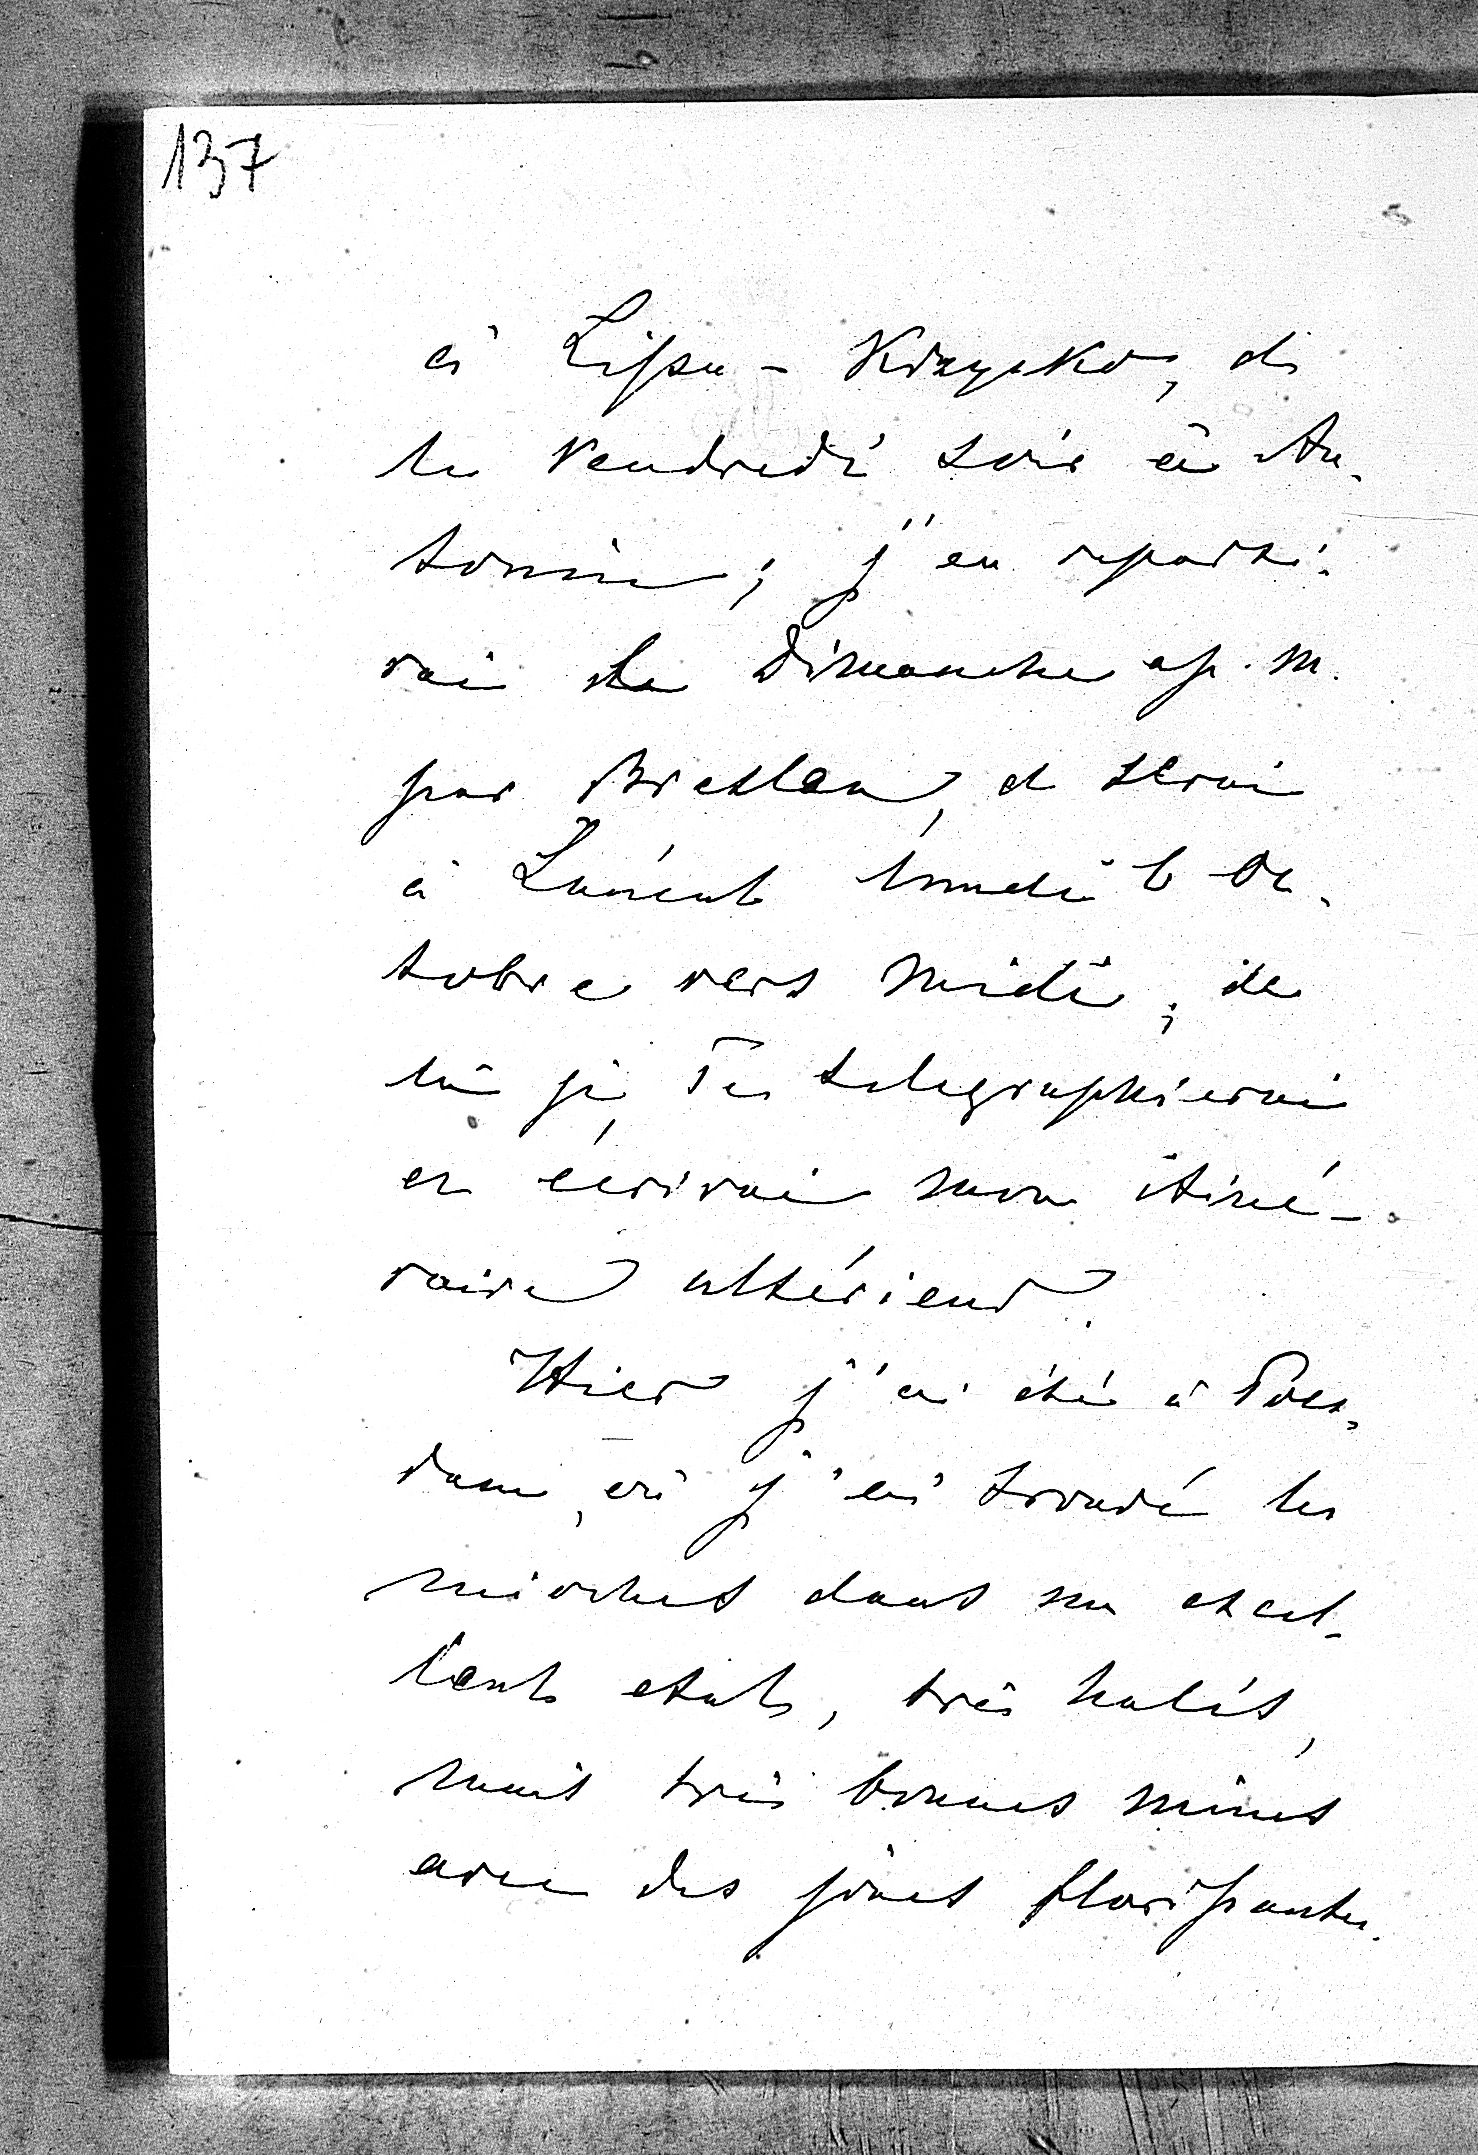 137
à Lissa - Krzycko, et
le Vendredi soir à An-
tonin; j'en reparti-
rai le Dimanche ap. m.
par Breslau, et serai
à Lancut lundi 6 Oc-
tobre vers midi; de
là je Te telegraphierai
et écrirai mon itiné-
raire ultérieur.
Hier j'ai été à Pots-
dam, où j'ai trouvé les
mioches dans un excel-
lent etat, très halés,
mais très bonnes mines
avec des joues florissantes.